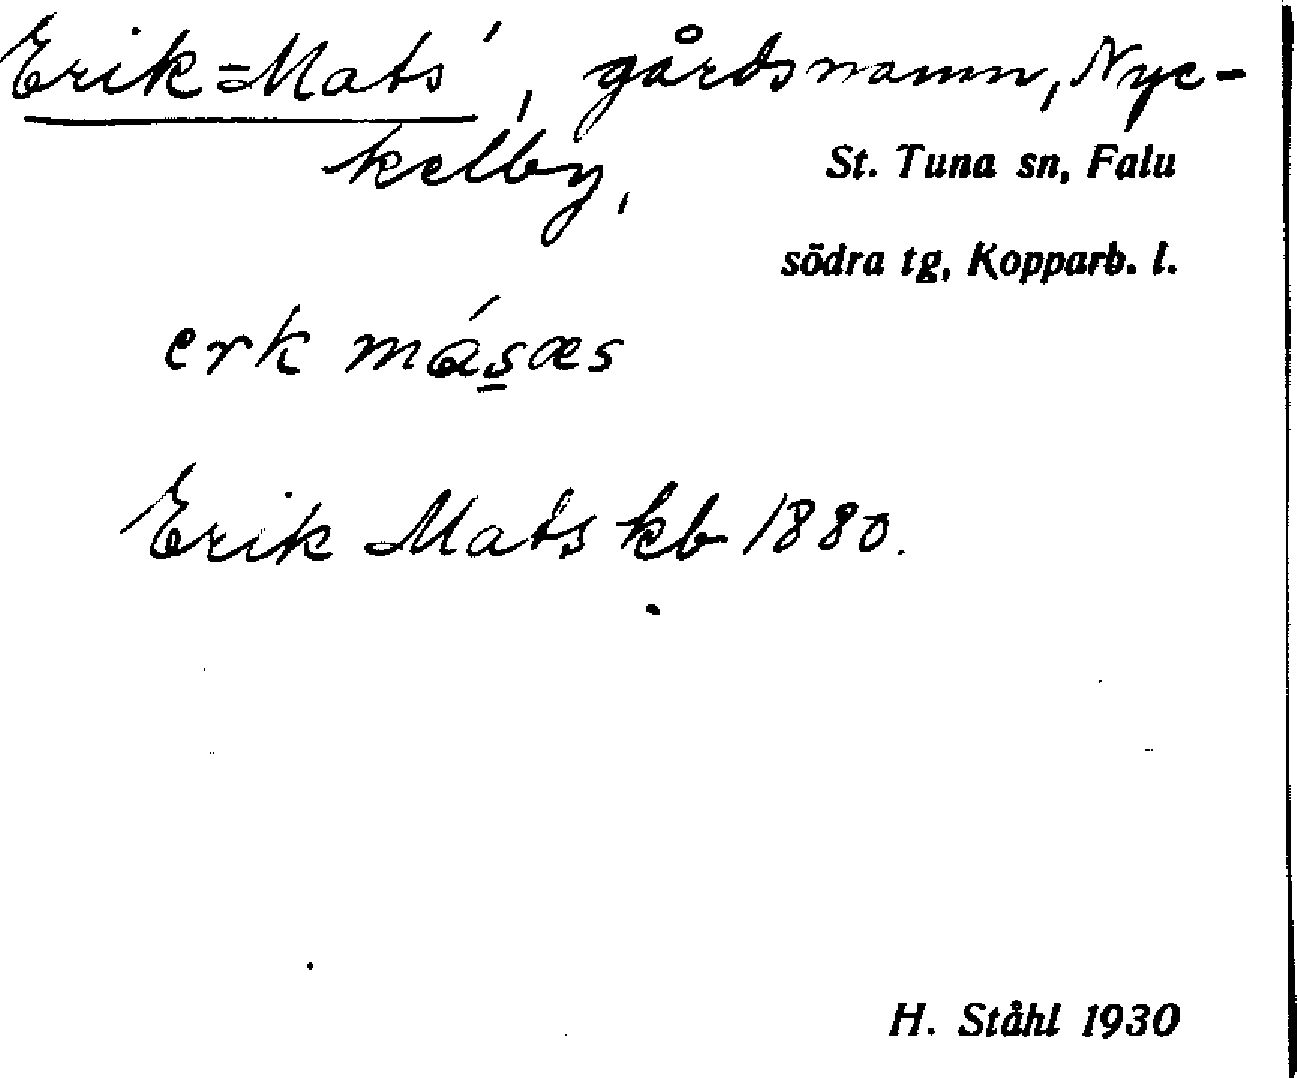 Erik-Mats', gårdsnamn, Nyc-
kelby,
St. Tuna sn, Falu
södra tg, Kopparb. l.
erk másæs
Erik Mats kb 1880.
H. Ståhl 1930